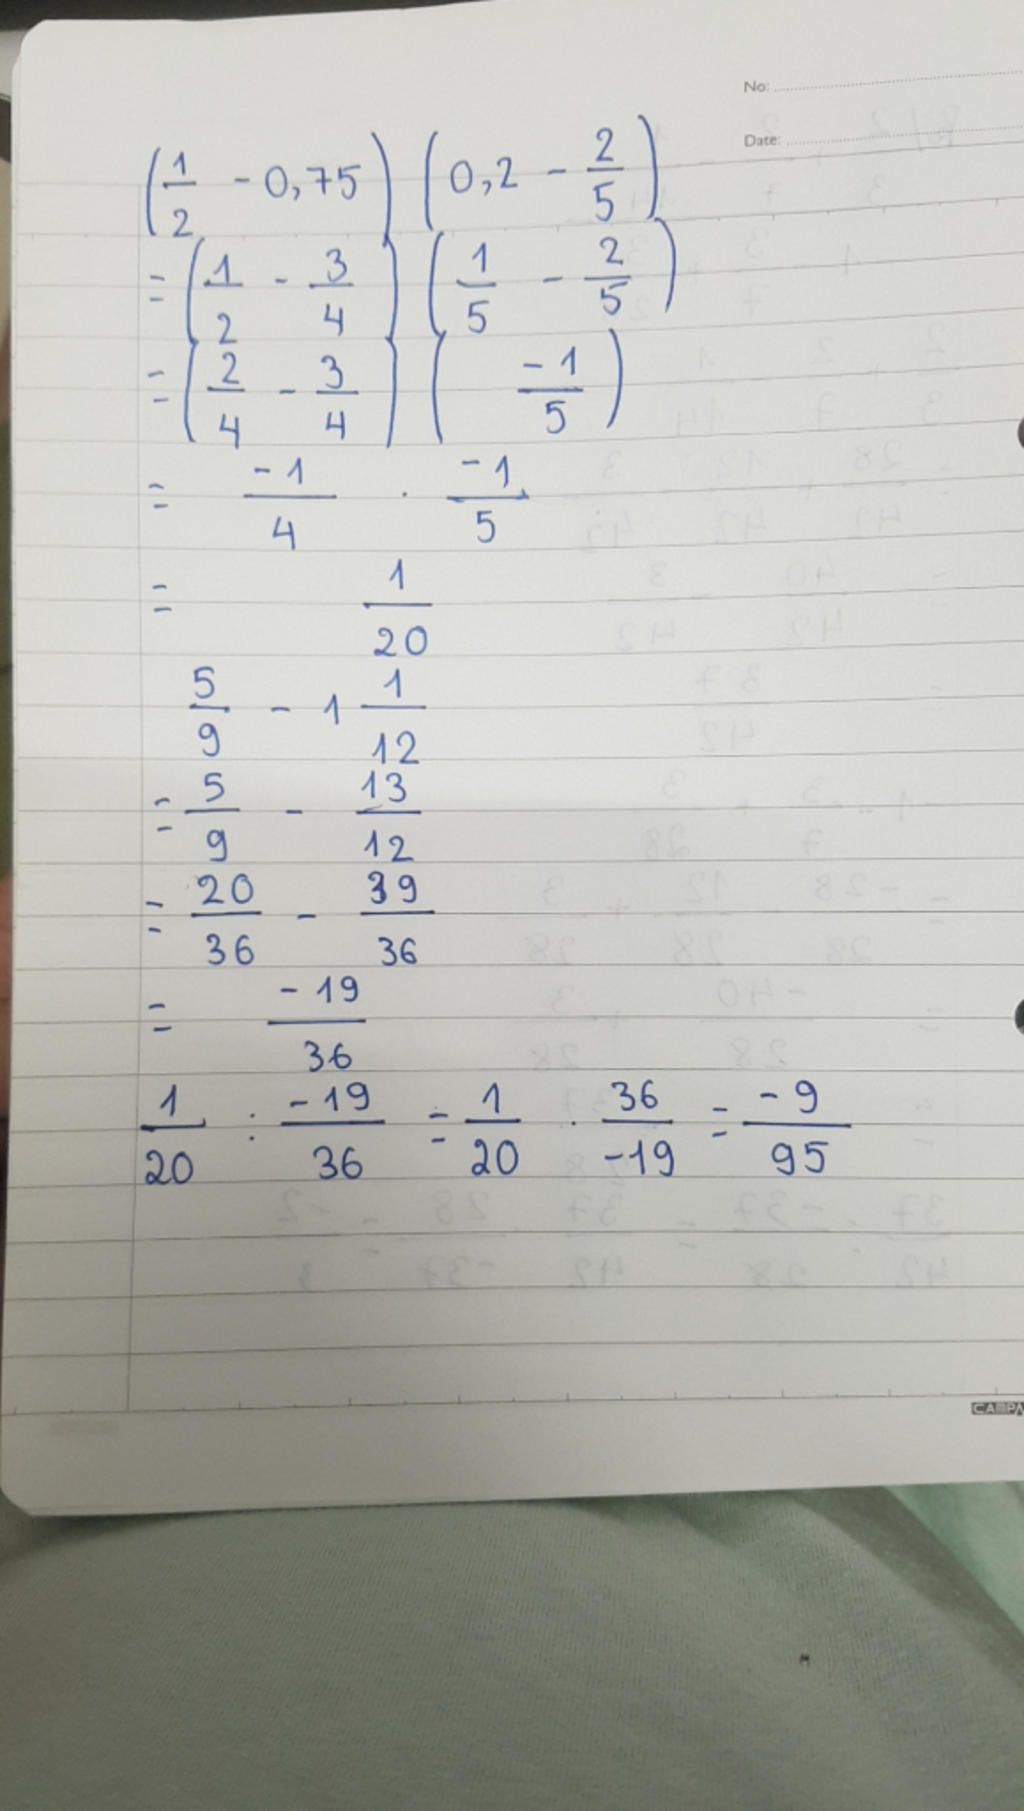 No:
Date:
(1/2 - 0,75) (0,2 - 2/5)
= (1/2 - 3/4) (1/5 - 2/5)
= (2/4 - 3/4) (-1/5)
= -1/4 . -1/5
= 1/20
5/9 - 1 1/12
= 5/9 - 13/12
= 20/36 - 39/36
= -19/36
1/20 : -19/36 = 1/20 . 36/-19 = -9/95